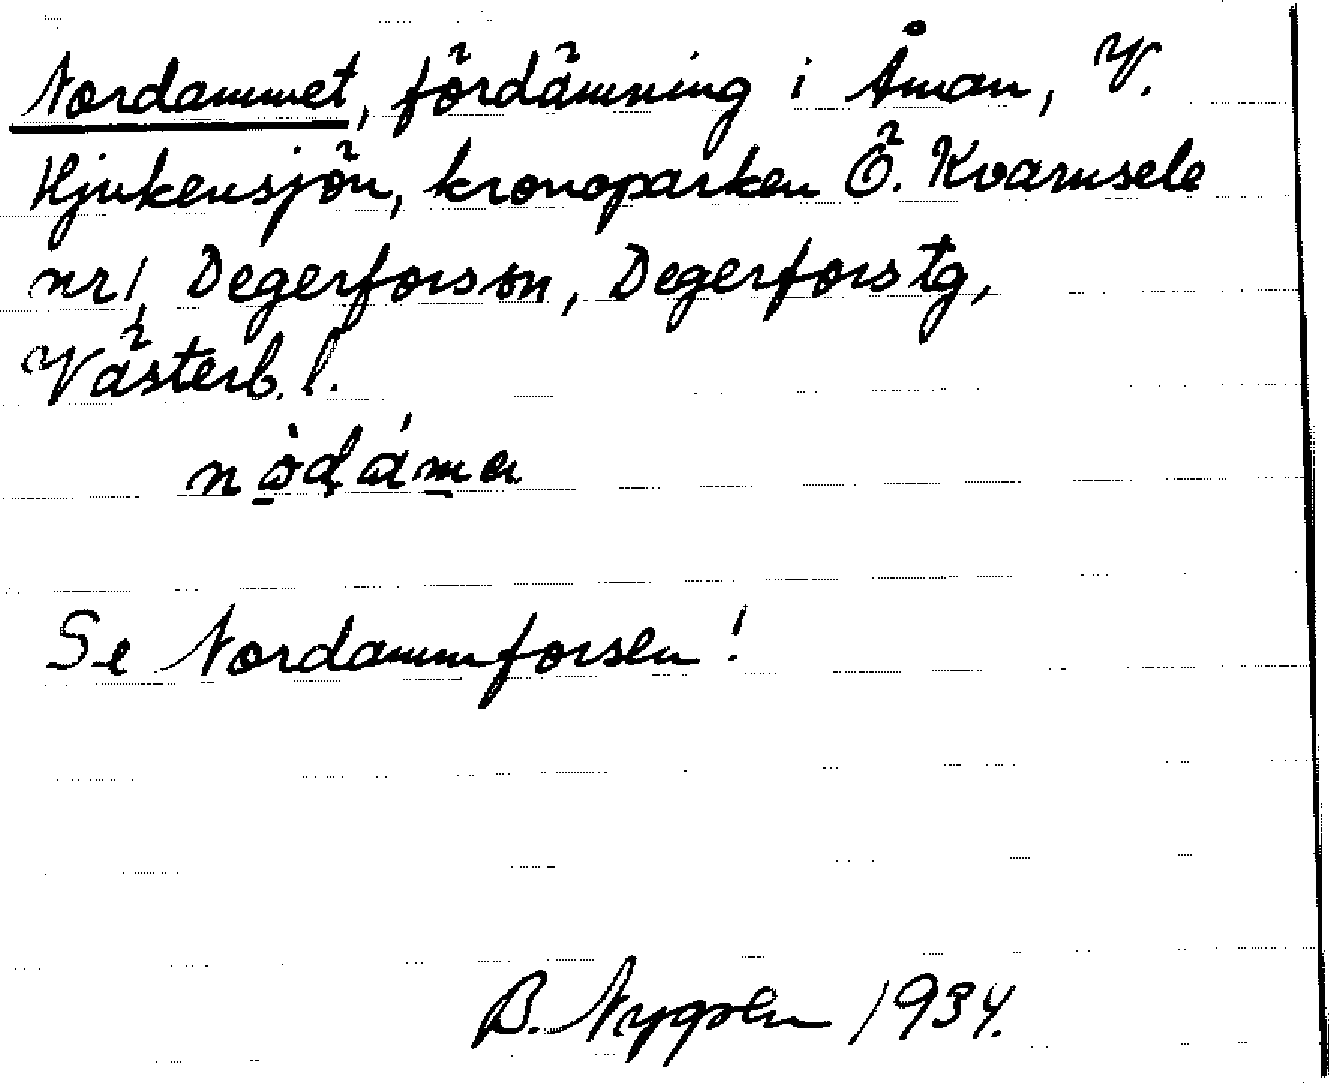 Nordammet, fördämning i Åman, V.
Hjukensjön, kronoparken Ö. Kvarnsele
nr 1, Degerfors sn, Degerfors tg,
Västerb. l.
Se Nordammforsen!
B. Nygren 1934.